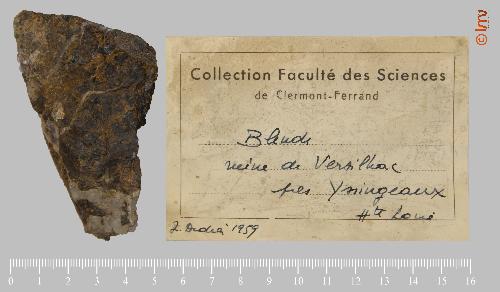 Collection Faculté des Sciences
de Clermont-Ferrand
Blende
mine de Versilhac
près Yssingeaux
Hte Loire
J. Andrá 1959
© lmv
0 1 2 3 4 5 6 7 8 9 10 11 12 13 14 15 16